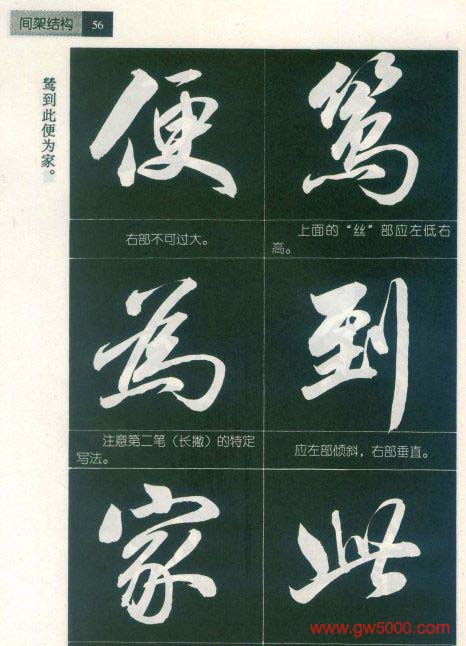 间架结构 56
鸶到此便为家。
鸶
上面的“丝”部应左低右
高。
到
应左部倾斜，右部垂直。
此
便
右部不可过大。
為
注意第二笔（长撇）的特定
写法。
家
www.gw5000.com